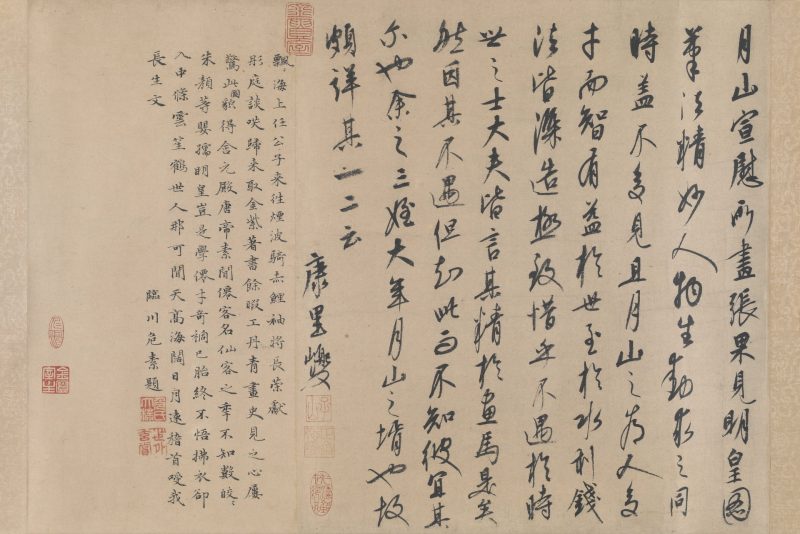 月山宣慰所畫張果見明皇圖
筆法精妙人物生動求之同
時蓋不多見且月山之為人多
才而智有益於世至於水利錢
法皆深造極致惜乎不遇於時
世之士大夫皆言其精於畫馬是矣
然因其不遇但知此而不知彼宜其
尒也余之三姪大年月山之壻也故
頗詳其一二云
康里巎
飄飄海上任公子來往煙波騎赤鯉袖將長策獻
彤庭談咲歸來取金紫著書餘暇工丹青畫史見之心屢
驚此圖貌得含元殿唐帝素聞僊客名仙客之年不知數皎皎
朱顏等嬰孺明皇豈是學僊才奇禍已胎終不悟拂衣卻
入中條雲笙鶴世人那可聞天高海闊日月遠稽首嗳我
長生文
臨川危素題